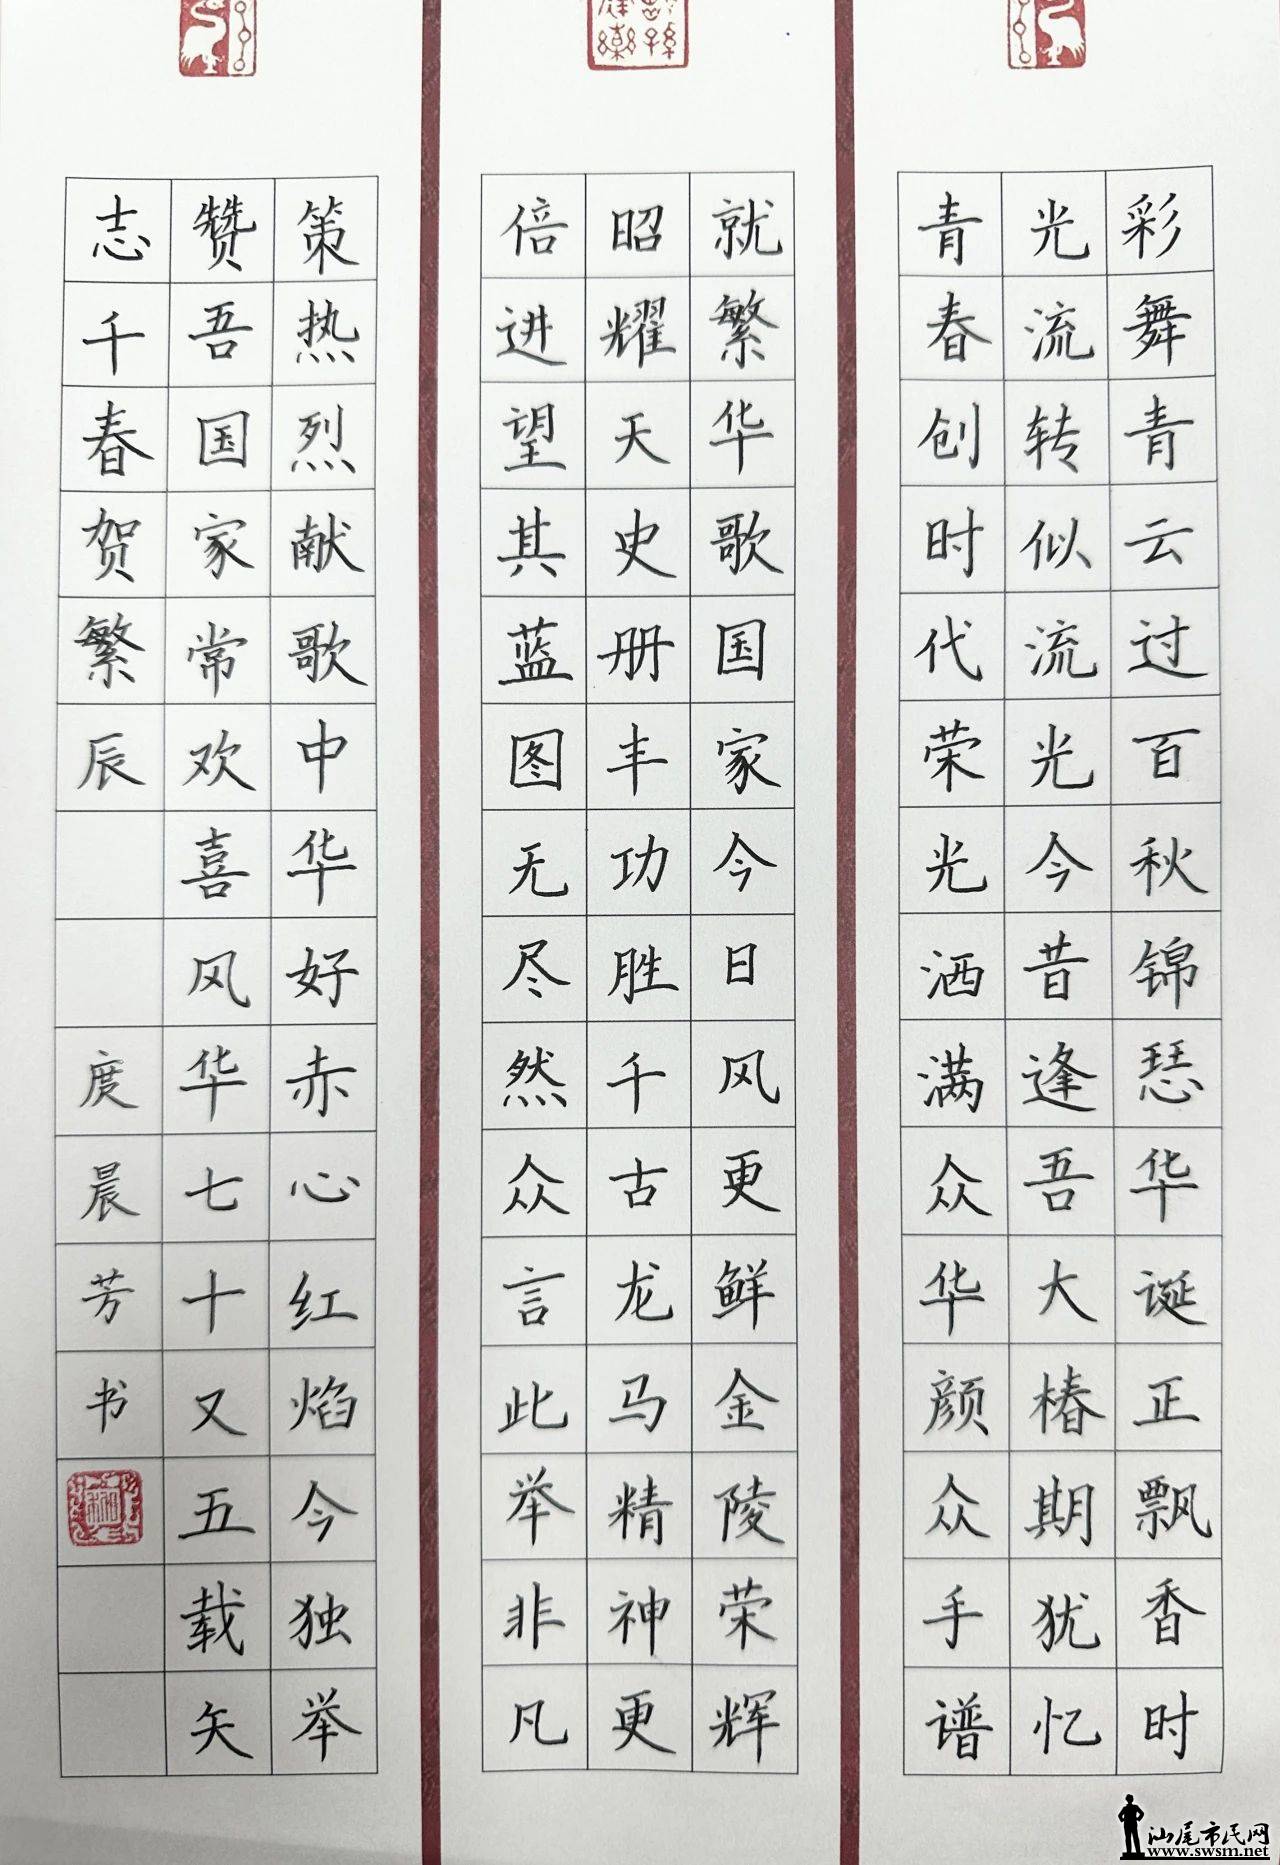 彩舞青云过百秋锦瑟华诞正飘香时
光流转似流光今昔逢吾大椿期犹忆
青春创时代荣光洒满众华颜众手谱
就繁华歌国家今日风更鲜金陵荣辉
昭耀天史册丰功胜千古龙马精神更
倍进望其蓝图无尽然众言此举非凡
策热烈献歌中华好赤心红焰今独举
赞吾国家常欢喜风华七十又五载矢
志千春贺繁辰
度晨芳书
汕尾市民网
www.swsm.net